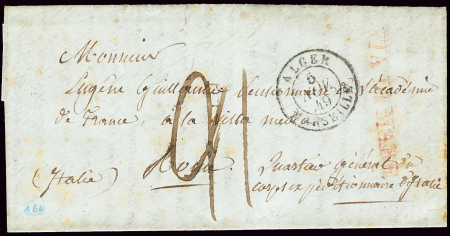 Monsieur
Eugène Guillaume Pensionnaire de l'académie
de France, à la villa med
Roma
(Italie)
Quartier général du
corps expéditionnaire d'Italie
ALGER
5
49
MARSEILLE
21
164